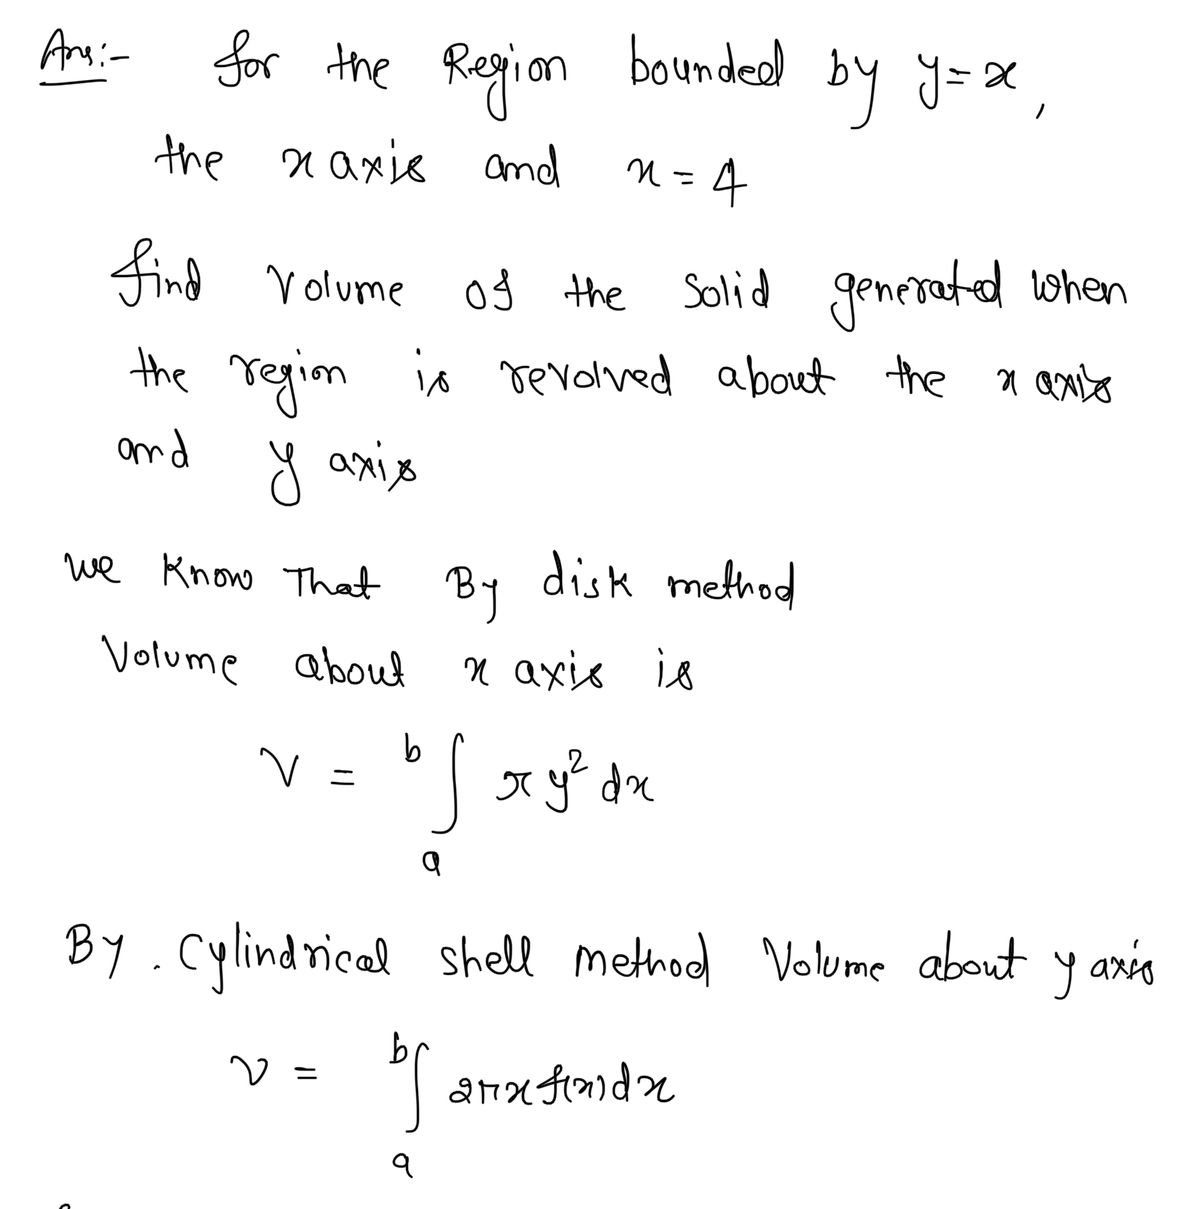 Ans:- for the Region bounded by y=x,
the x axis and x=4
find volume of the Solid generated when
the region is revolved about the x axis
and y axis
we Know That By disk method
Volume about x axis is
V = b∫ π y² dx
a
By . Cylindrical shell method Volume about y axis
V = b∫ 2πx f(x) dx
a